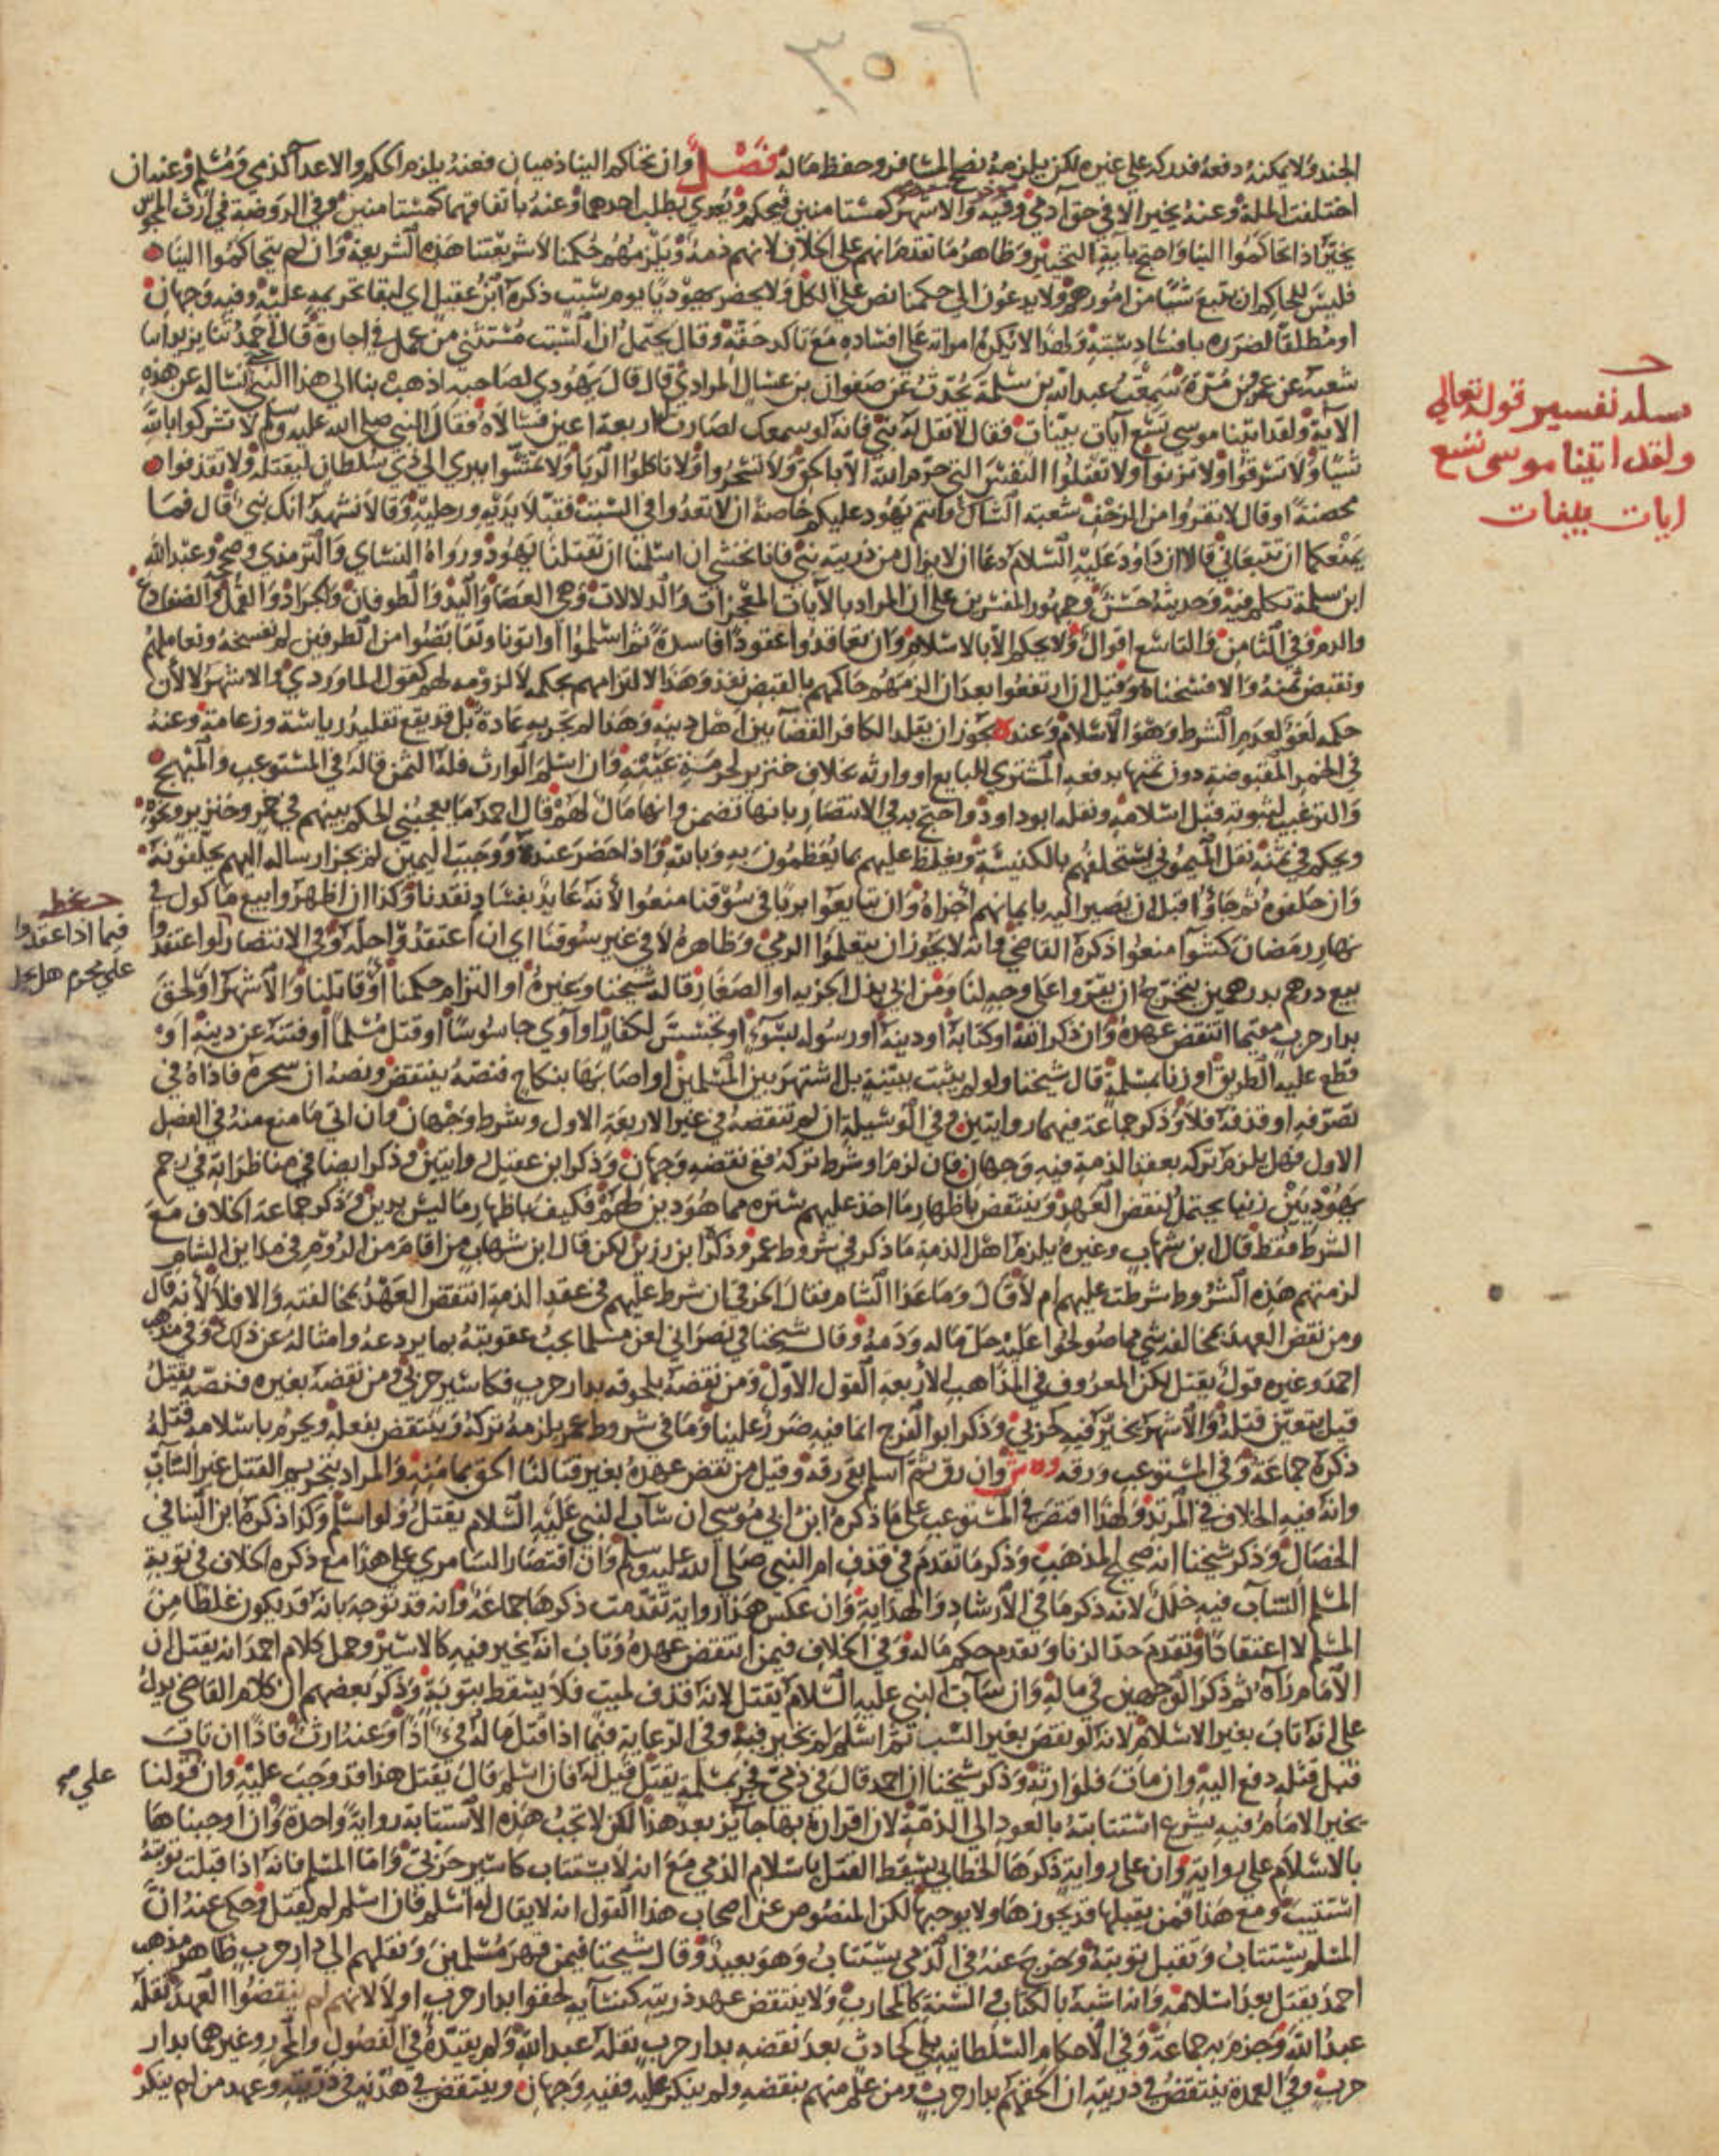 ٣٠٥٦
الجند ولا يمكنه دفعه فدركه على غيره لكن يلزمه نصح المسافر وحفظ ماله فصل وان تحاكم الينا ذميان فعنه يلزم الحكم والاعدا كذمي ومسلم وعنه ان
اختلفت الملة وعنه يخير الا في حق آدمي وفيه والاشهر كمستامنين فيحكم ويعدي بطلب احدهما وعنه باتفاقهما كمستامنين وفي الروضة في ارث المجوس
يخير اذا تحاكموا الينا واحتج بآية التخيير وظاهر ما تقدم انهم على الخلاف لانهم ذمة ويلزمهم حكمنا لا شريعتنا هذه الشريعة وان لم يتحاكموا الينا
فليس للحاكم ان يتبع شيئا من امورهم ولا يدعون الى حكمنا نص على الكل ولا يحضر يهوديا يوم سبت ذكره ابن عقيل اي لبقا تحريمه عليه وفيه وجهان
او مطلقا لضرره بافساد سبته ولهذا لا يكره امراته على افساده مع تاكد حقه وقال يحتمل ان السبت مستثنى من عمل في اجارة قال احمد ثنا يزيد انا
شعبة عن عمرو بن مرة سمعت عبد الله بن سلمة يحدث عن صفوان بن عسال المرادي قال قال يهودي لصاحبه اذهب بنا الى هذا النبي نساله عن هذه
الآية ولقد اتينا موسى تسع آيات بينات فقال لا تقل له نبي فانه لو سمعك لصارت له اربعة اعين فسالاه فقال النبي صلى الله عليه وسلم لا تشركوا بالله
شيئا ولا تسرقوا ولا تزنوا ولا تقتلوا النفس التي حرم الله الا بالحق ولا تسحروا ولا تاكلوا الربا ولا تمشوا ببري الى ذي سلطان ليقتله ولا تقذفوا
محصنة او قال لا تفروا من الزحف شعبة الشاك وانتم يهود عليكم خاصة ان لا تعدوا في السبت فقبلا يديه ورجليه وقالا نشهد انك نبي قال فما
يمنعكما ان تتبعاني قالا ان داود عليه السلام دعا ان لا يزال من ذريته نبي وانا نخشى ان اسلمنا ان تقتلنا يهود ورواه النسائي والترمذي وصححه وعبد الله
ابن سلمة تكلم فيه وحديثه حسن وجمهور المفسرين على ان المراد بالآيات المعجزات والدلالات وهي العصا واليد والطوفان والجراد والقمل والضفادع
والدم وفي الثامن والتاسع اقوال ولا يحكم الا بالاسلام وان تعاقدوا عقودا فاسدة ثم اسلموا او اتونا وتقابضوا من الطرفين لم نفسخه ونعاملهم
ونقبض ثمنه والا فسخناه وقيل ان ارتفعوا بعد ان الزمهم حاكمهم بالقبض نفذ وهذا لالتزامهم بحكمه لا لزومه لهم كقول الماوردي والاشهر لا لان
حكمه لغو لعدم الشرط وهو الاسلام وعند ه يجوز ان يقلد الكافر القضا بين اهل دينه وهذا لم تجر به عادة بل قد يقع تقليد رياسة وزعامة وعنه
في الخمر المقبوضة دون ثمنها يدفعه المشتري للبايع او وارثه بخلاف خنزير لحرمة عينه وان اسلم الوارث فله الثمن قاله في المستوعب والمبهج
والترغيب لثبوته قبل اسلامه ونقله ابو داود واحتج به في الانتصار بانها تضمن وانها مال لهم قال احمد ما يعجبني الحكم بينهم في خمر وخنزير ونحوه
ويحكم في ثمنه نقل الميموني يستحلفهم بالكنيسة ويغلظ عليهم بما يعظمون به وبالله واذا حضر عنده ووجبت اليمين لم يجز ارساله اليهم يحلفونه
وان حلفوه ثم جاؤا قبل ان يصير اليه بايمانهم اجزاه وان تبايعوا بربا في سوقنا منعوا لانه عايد بفساد نقدنا وكذا ان اظهروا بيع ماكول في
نهار رمضان كشوا منعوا ذكره القاضي وانه لا يجوز ان يتعلموا الرمي وظاهره لا في غير سوقنا اي ان اعتقدوا حله وفي الانتصار لو اعتقدوا
بيع درهم بدرهمين يتخرج ان يقروا على وجه لنا ومن ابى بذل الجزية او الصغار قاله شيخنا وغيره او التزام حكمنا او قاتلنا والاشهر او لحق
بدار حرب مقيما انتقض عهده وان ذكر الله او كتابه او دينه او رسوله بسوء او تجسس لكفار او آوى جاسوسا او قتل مسلما او فتنه عن دينه او
قطع عليه الطريق او زنا بمسلمة قال شيخنا ولو لم يثبت ببينة بل اشتهر بين المسلمين او اصابها بنكاح فنصه ينتقض ونصه ان سحره فاذاه في
تصرفه او قذفه فلا وذكر جماعة فيهما روايتين وفي الوسيلة ان لم تنقضه في غير الاربعة الاول وشرط وجهان وان اتى ما منع منه في الفصل
الاول فهل يلزم تركه بعقد الذمة فيه وجهان فان لزم او شرط تركه ففي نقضه وجهان وذكر ابن عقيل روايتين وذكر ايضا في مناظراته في رجم
يهوديين زنيا يحتمل لنقض العهد وينتقض باظهار ما اخذ عليهم ستره مما هو دين لهم فكيف باظهار ما ليس بدين وذكر جماعة الخلاف مع
الشرط فقط قال ابن شهاب وغيره يلزم اهل الذمة ما ذكر في شروط عمر وذكره ابن رزين لكن قال ابن شهاب من اقام من الروم في مداين الشام
لزمتهم هذه الشروط شرطت عليهم ام لا قال وما عدا الشام فقال الخرقي ان شرط عليهم في عقد الذمة انتقض العهد بمخالفته والا فلا لانه قال
ومن نقض العهد بمخالفة شي مما صولحوا عليه حل ماله ودمه وقال شيخنا في نصراني لعن مسلما يجب عقوبته بما يردعه وامثاله عن ذلك وفي مذهب
احمد وغيره قول يقتل لكن المعروف في المذاهب الاربعة القول الاول ومن نقضه بلحوقه بدار حرب فكاسير حربي ومن نقضه بغيره فنصه يقتل
قيل يتعين قتله والاشهر يخير فيه كحربي وذكر ابو الفرج ان ما فيه ضرر علينا وما في شروط عمر يلزمه تركه وينتقض بفعله ويحرم باسلامه قتله
ذكره جماعة وفي المستوعب ورقه وه ش وان رق ثم اسلم بقي رقه وقيل من نقض عهده بغير قتالنا الحق بمامنه والمراد بتحريم القتل غير الساب
وانه فيه الخلاف في المرتد ولهذا اقتصر في المستوعب على ما ذكره ابن ابي موسى ان ساب النبي عليه السلام يقتل ولو اسلم وكذا ذكره ابن البنا في
الخصال وذكر شيخنا انه صحيح المذهب وذكر ما تقدم في قذف ام النبي صلى الله عليه وسلم وان اقتصار السامري على هذا مع ذكره الخلاف في توبة
المسلم الساب فيه خلل لانه ذكر ما في الارشاد والهداية وان عكس هذا رواية تقدمت ذكرها جماعة وانه قد توجه بانه قد يكون غلطا من
المسلم لا اعتقادا وتقدم حد الزنا وتقدم حكم ماله وفي الخلاف فيمن انتقض عهده وتاب انه يخير فيه كالاسير وحمل كلام احمد انه يقتل ان
الامام رآه ثم ذكر الوجهين في ماله وان ساب النبي عليه السلام يقتل لانه قذف لميت فلا يسقط بتوبة وذكر بعضهم ان كلام القاضي يدل
على انه تاب بغير الاسلام لانه لو نقض بغير السب ثم اسلم لم يخير فيه وفي الرعاية فيما اذا قتل ماله فيء اذا وعنه ارث فاذا ان تاب
قبل قتله دفع اليه وان مات فلوارثه وذكر شيخنا ان احمد قال في ذمي فجر بمسلمة يقتل قيل له فان اسلم قال يقتل هذا قد وجب عليه وان قولنا
يخير الامام فيه يشرع استتابته بالعود الى الذمة لان اقراره بها جايز بعد هذا لكن لا تجب هذه الاستتابة رواية واحدة وان اوجبناها
بالاسلام على رواية وان على رواية ذكرها الخطابي يسقط القتل باسلام الذمي مع انه لا يستتاب كاسير حربي واما المسلم فانه اذا قبلت توبته
استتيب ومع هذا فمن يقبلها قد يجوزها ولا يوجبها لكن المنصوص عن اصحاب هذا القول انه لا يقال له اسلم فان اسلم لم يقتل وحكي عنه ان
المسلم يستتاب وتقبل توبته وخرج عنه في الذمي يستتاب وهو بعيد وقال شيخنا فيمن قهر مسلمين ونقلهم الى دار حرب ظاهر مذهب
احمد يقتل بعد اسلامه وانه اشبه بالكتاب والسنة كالمحارب ولا ينتقض عهد ذريته كنسايه لحقوا بدار حرب اولا لانهم لم ينقضوا العهد نقله
عبد الله وجزم به جماعة وفي الاحكام السلطانية بلى كحادث بعد نقضه بدار حرب نقله عبد الله ولم يقيده في الفصول والمحرر وغيرهما بدار
حرب وفي العمدة ينتقض في ذريته ان الحقهم بدار حرب ومن علم منهم بنقضه ولم ينكر عليه وفيه وجهان وينتقض في هدنة في ذريته وعهد من لم ينكر
تفسير قوله تعالى
ولقد اتينا موسى تسع
ايات بينات
فيما اذا اعتقدوا
على محرم هل يحل
على